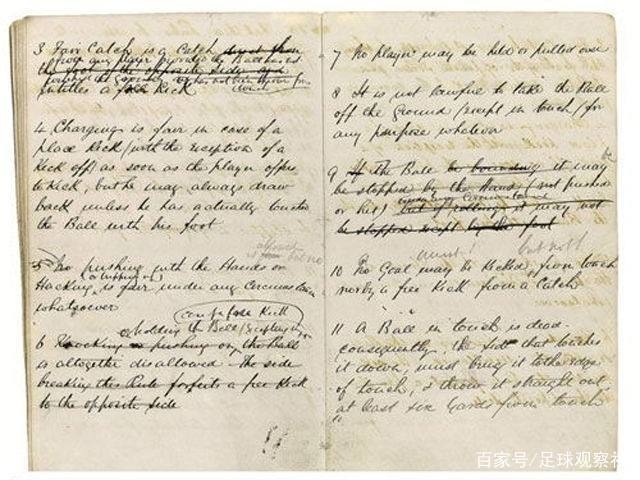 3 Fair Catch is a Catch direct from
from any player provided the Ball has not
the foot of the opposite side and
touched the ground or has not been thrown from
touch
entitles a free Kick
4 Charging is fair in case of a
place Kick (with the exception of a
Kick off) as soon as the player offers
to Kick, but he may always draw
back unless he has actually touched
the Ball with his foot
5 No pushing with the Hands or
or tripping up
Hacking is fair under any Circumstances
whatsoever
holding the Ball
6 Knocking or pushing on the Ball
is altogether disallowed. The side
breaking this Rule forfeits a free Kick
to the opposite side
7 No player may be held or pulled over
8 It is not lawful to take the Ball
off the Ground (except in touch) for
any purpose whatever
9 If the Ball be bounding it may be
be stopped by the Hand (not pushed
or hit) but if rolling it may not
be stopped except by the foot
must! but not
10 No Goal may be Kicked from touch
nor by a free Kick from a Catch
11 A Ball in touch is dead.
consequently, the side that touches
it down, must bring it to the edge
of touch, & throw it straight out,
at least six yards from touch
百家号/足球观察社